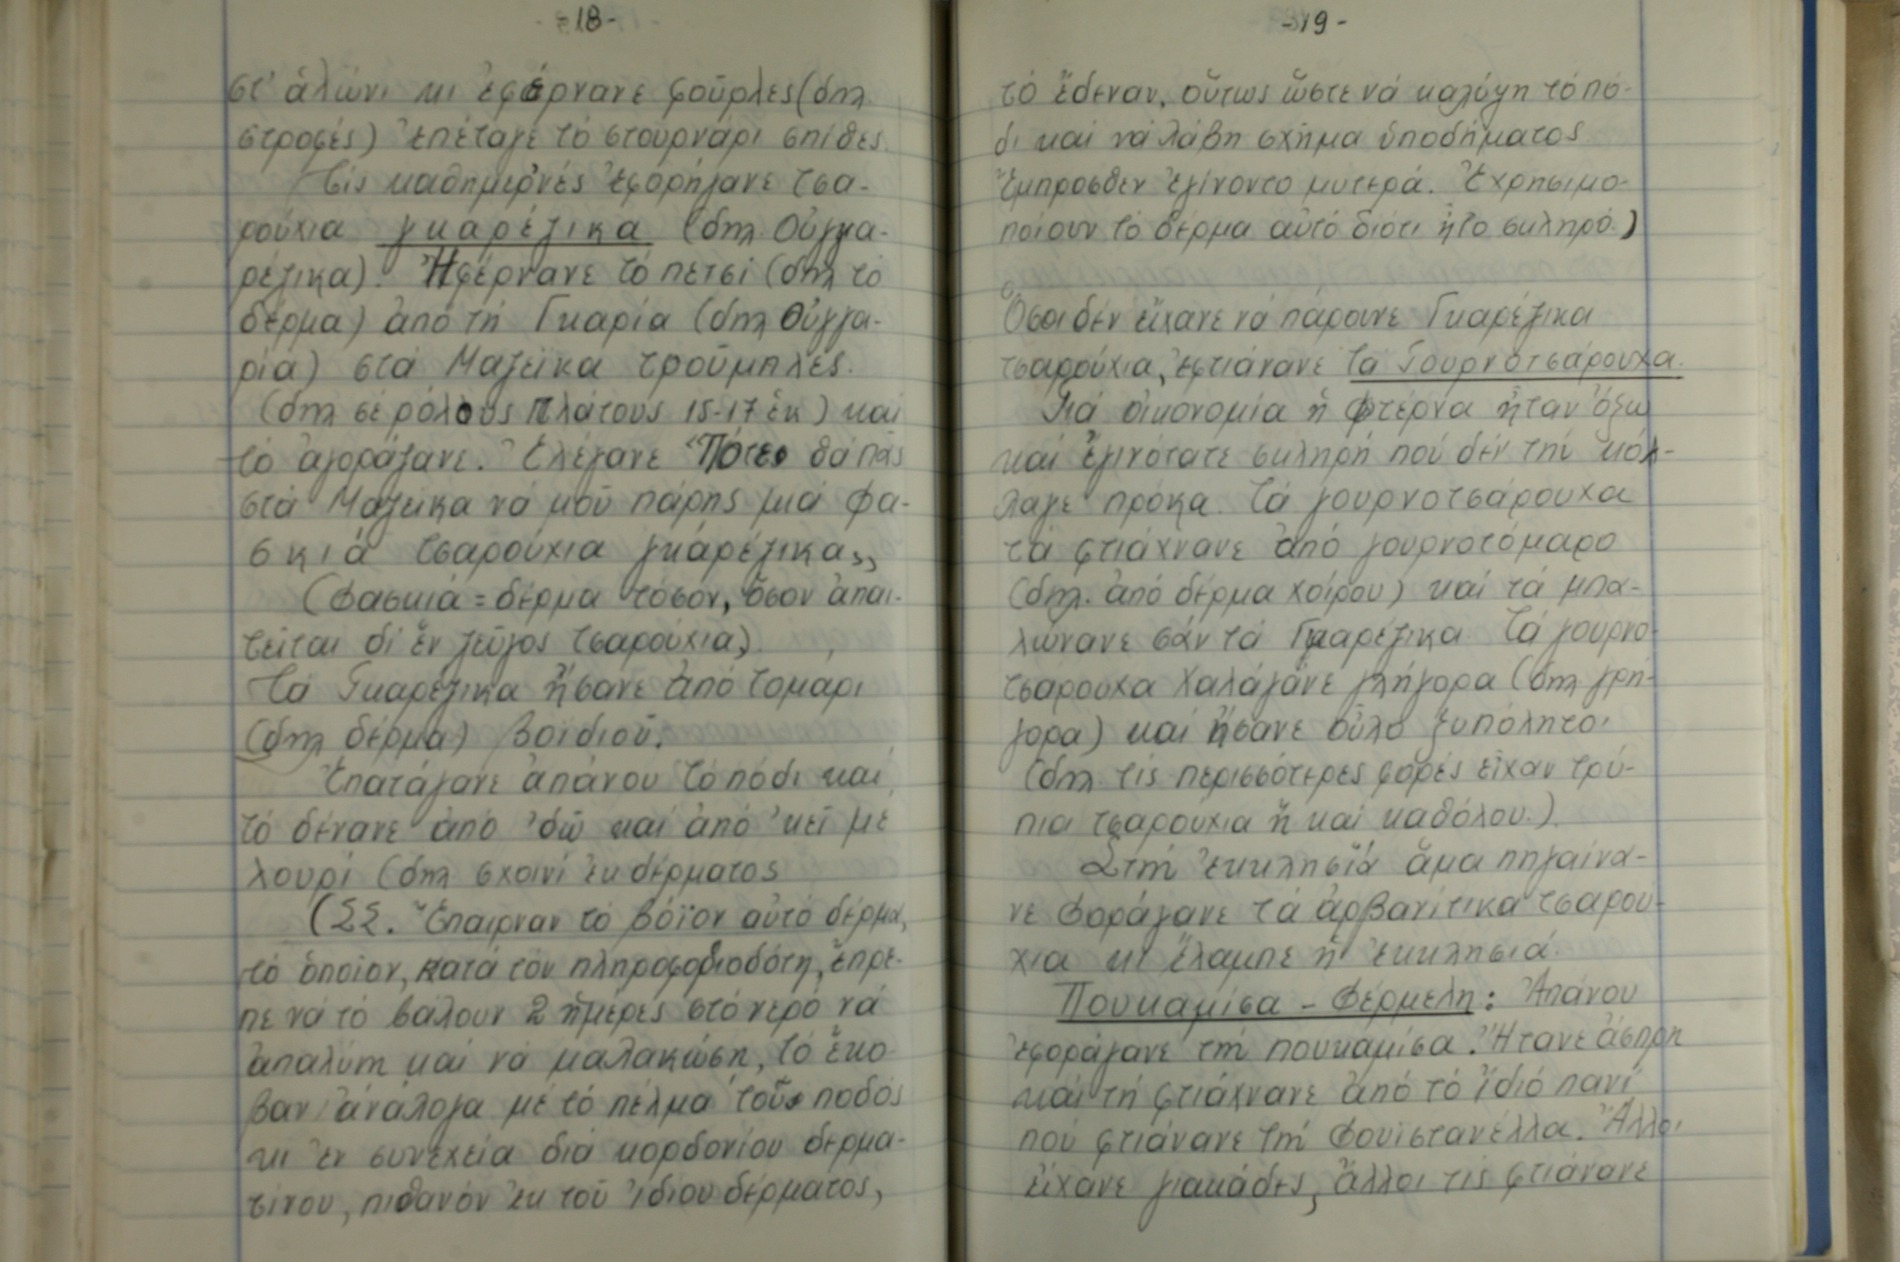 -18-
στ' ἁλώνι κι ἐφέρνανε φοῦρλες (δηλ.
στροφές) ἐπέταγε τό στουρνάρι σπίθες.
Τίς καθημερνές ἐφορήγανε τσα-
ρούχια γκαρέζικα (δηλ. Οὐγγα-
ρέζικα). Ἠφέρνανε τό πετσί (δηλ τό
δέρμα) ἀπό τή Γκαρία (δηλ Οὐγγα-
ρία) στά Μαζέϊκα τροῦμπλες.
(δηλ σέ ρόλους πλάτους 15-17 ἑκ) καί
τό ἀγοράζανε. Ἐλέγανε "Πότε θά πᾶς
στά Μαζέϊκα νά μοῦ πάρης μιά φα-
σκιά τσαρούχια γκαρέζικα,,
(Φασκιά = δέρμα τόσον, ὅσον ἀπαι-
τεῖται δι' ἕν ζεῦγος τσαρούχια).
Τά Γκαρέζικα ἤσανε ἀπό τομάρι
(δηλ δέρμα) βοϊδιοῦ.
Ἐπατάγανε ἀπάνου τό πόδι καί
τό δένανε ἀπό 'δῶ καί ἀπό 'κεῖ μέ
λουρί (δηλ σχοινί ἐκ δέρματος
(ΣΣ. Ἔπαιρναν τό βόϊον αὐτό δέρμα,
τό ὁποῖον, κατά τόν πληροφοριοδότη, ἔπρε-
πε νά τό βάλουν 2 ἡμέρες στό νερό νά
ἁπαλύνη καί νά μαλακώση, τό ἔκο-
βαν ἀνάλογα μέ τό πέλμα τοῦ ποδός
κι ἐν συνεχεία διά κορδονίου δερμα-
τίνου, πιθανόν ἐκ τοῦ ἰδίου δέρματος,
-19-
τό ἔδεναν, οὕτως ὥστε νά καλύψη τό πό-
δι καί νά λάβη σχῆμα ὑποδήματος.
Ἔμπροσθεν ἐγίνοντο μυτερά. Ἐχρησιμο-
ποίουν τό δέρμα αὐτό διότι ἦτο σκληρό.)
Ὅσοι δέν εἴχανε νά πάρουνε Γκαρέζικα
τσαρούχια, ἐφτιάνανε τα Γουρνοτσάρουχα.
Γιά οἰκονομία ἡ φτέρνα ἤταν ὄξω
καί ἐγινότατε σκληρή πού δέν τήν κόλ-
λαγε πρόκα. Τά γουρνοτσάρουχα
τά φτιάχνανε ἀπό γουρνοτόμαρο
(δηλ. ἀπό δέρμα χοίρου) καί τά μπα-
λώνανε σάν τά Γκαρέζικα. Τά γουρνο-
τσάρουχα χαλάγανε γλήγορα (δηλ γρή-
γορα) καί ἤσανε οὗλο ξυπόλητοι
(δηλ. τίς περισσότερες φορές εἶχαν τρύ-
πια τσαρούχια ἤ καί καθόλου.).
Στήν ἐκκλησιά ἅμα πηγαίνα-
νε φοράγανε τά ἀρβανίτικα τσαρού-
χια κι ἔλαμπε ἡ ἐκκλησιά.
Πουκαμίσα - Φέρμελη: Ἀπάνου
ἐφοράγανε τήν πουκαμίσα. Ἤτανε ἄσπρη
καί τή φτιάχνανε ἀπό τό ἴδιο πανί
πού φτιάνανε τήν φουϊστανέλλα. Ἄλλοι
εἴχανε γιακάδες, ἄλλοι τίς φτιάνανε